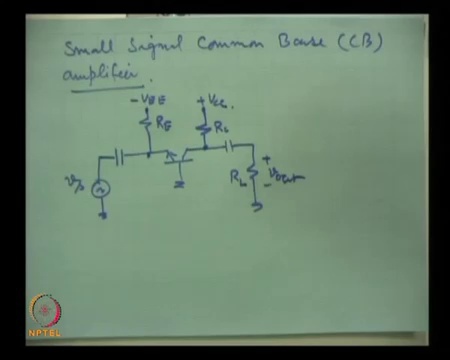 Small Signal Common Base (CB)
amplifier.
-VEE
+VCC
RE
RC
vs
RL
+
vout
-
NPTEL